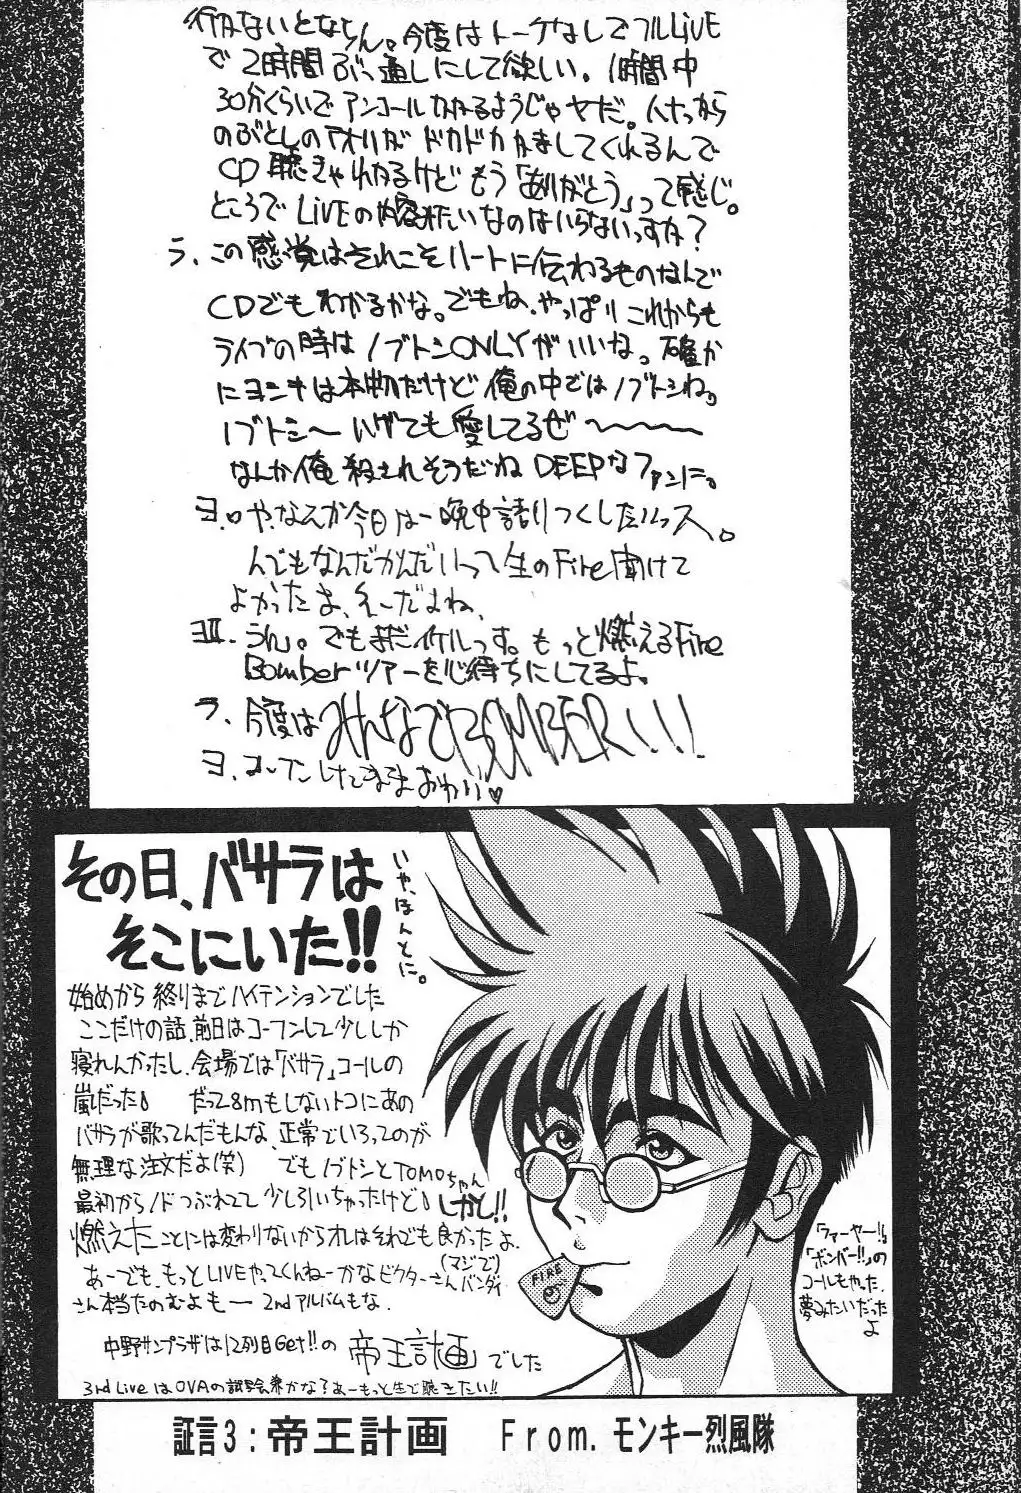 行かないとならん。今度はトークなしでフルLiVE
で2時間ぶっ通しにして欲しい。1時間半
30分くらいでアンコールかかるようじゃヤだ。
のぶとしのアオリがドカドカかましてくれるんで
CD聴きゃわかるけどもう「ありがとう」って感じ。
ところでLiVEの内容みたいなのはいらないっすか?
ラ. この感覚はそれこそハートに伝わるものなんで
CDでもわかるかな。でもね、やっぱりこれからも
ライブの時はノブトシONLYがいいな。確か
にヨシキは本物だけど俺の中ではノブトシね。
ノブトシ〜 ハゲても愛してるぜ〜〜〜〜
なんか俺殺されそうだねDEEPなファンに。
ヨ. や、なんか今日は一晩中語りつくしたいッス。
んでもなんだかんだいって生のFire聞けて
よかったよ、えーだよね、
ヨII. うん。でもまだイケルっす。もっと燃えるFire
Bomberツアーを心待ちにしてるよ。
ラ. 今度はみんなでBOMBER!!!
ヨ. コーフンしたままおわり♥
その日、バサラは
そこにいた!!
いや、ほんとに。
始めから終りまでハイテンションでした
ここだけの話、前日はコーフンして少ししか
寝れんかったし、会場では「バサラ」コールの
嵐だった! だって8mもしないトコにあの
バサラが歌ってんだもんな、正常でいろってのが
無理な注文だよ(笑) でもノブトシとTOMOちゃん
最初からノドつぶれてて少し引いちゃったけど! しかし!!
燃えたことには変わりないからオレはそれでも良かったよ.
あーでも、もっとLIVEやってくんねーかなビクターさん(マジで)バンダイ
さん本当たのむよもー 2ndアルバムもな.
中野サンプラザは12列目Get!!の 帝王計画 でした
3rd LiveはOVAの試写会兼かな?あーもっと生で聴きたい!!
FIRE
「ファーヤー!!」
「ボンバー!!」の
コールもやった.
夢みたいだった
よ
証言3:帝王計画 From.モンキー烈風隊